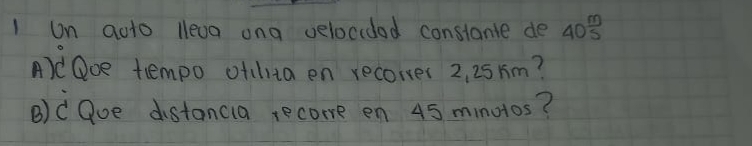 1 Un auto lleva una velocidad constante de 40 m/s
A) ¿Que tiempo utiliza en recorrer 2,25 Km?
B) ¿Que distancia recorre en 45 minutos?